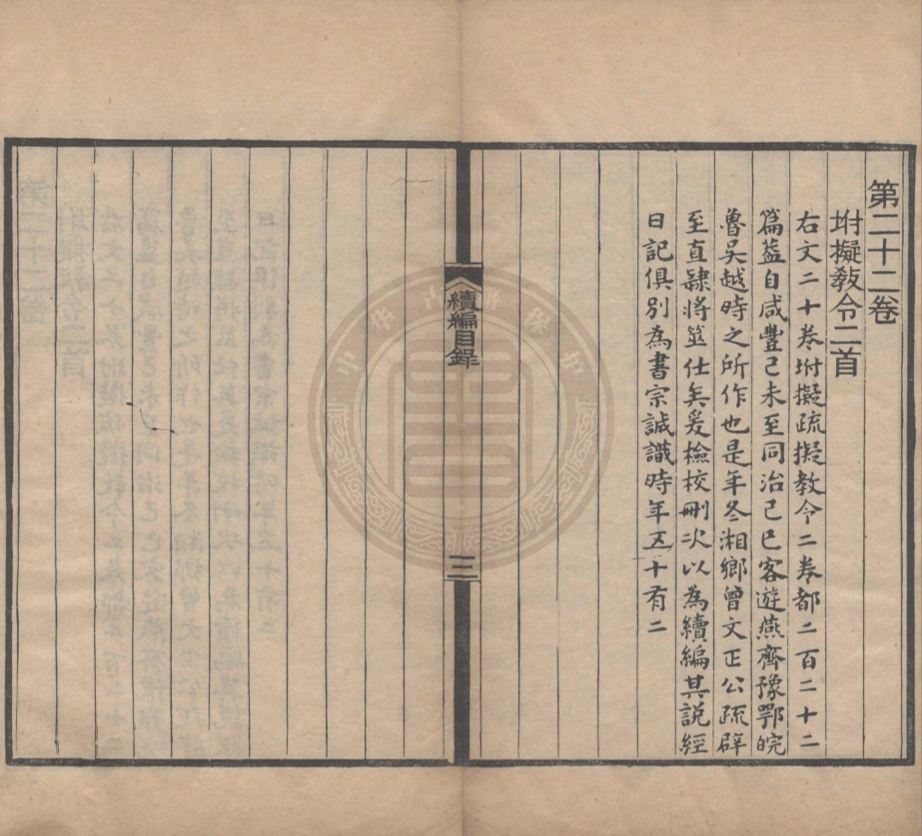 第二十二卷
坿擬敎令二首
右文二十卷坿擬疏擬教令二卷都二百二十二
篇葢自咸豐己未至同治己巳客遊燕齊豫鄂皖
魯吳越時之所作也是年冬湘鄉曾文正公疏辟
至直隸將筮仕矣爰檢校刪次以為續編其説經
日記俱別為書宗誠識時年五十有二
續編目錄
三